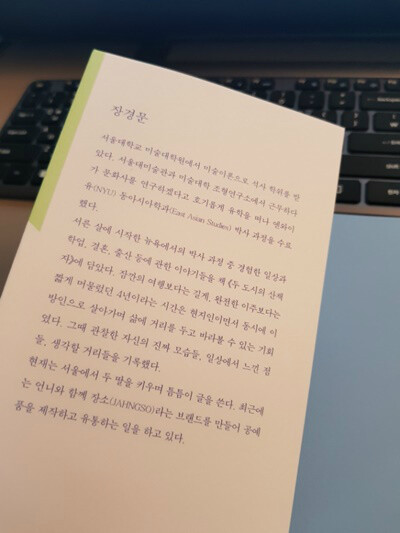 장경문
서울대학교 미술대학원에서 미술이론으로 석사 학위를 받
았다. 서울대미술관과 미술대학 조형연구소에서 근무하다
가 문화사를 연구하겠다고 호기롭게 유학을 떠나 뉴욕
유(NYU) 동아시아학과(East Asian Studies) 박사 과정을 수료
했다.
서른 살에 시작한 뉴욕에서의 박사 과정 중 경험한 일상과
학업, 결혼, 출산 등에 관한 이야기들을 책 《두 도시의 산책
자》에 담았다. 잠깐의 여행보다는 길게, 완전한 이주보다는
짧게 머물렀던 4년이라는 시간은 현지인이면서 동시에 이
방인으로 살아가며 삶에 거리를 두고 바라볼 수 있는 기회
였다. 그때 관찰한 자신의 진짜 모습들, 일상에서 느낀 점
들, 생각할 거리들을 기록했다.
현재는 서울에서 두 딸을 키우며 틈틈이 글을 쓴다. 최근에
는 언니와 함께 장소(JAHNGSO)라는 브랜드를 만들어 공예
품을 제작하고 유통하는 일을 하고 있다.